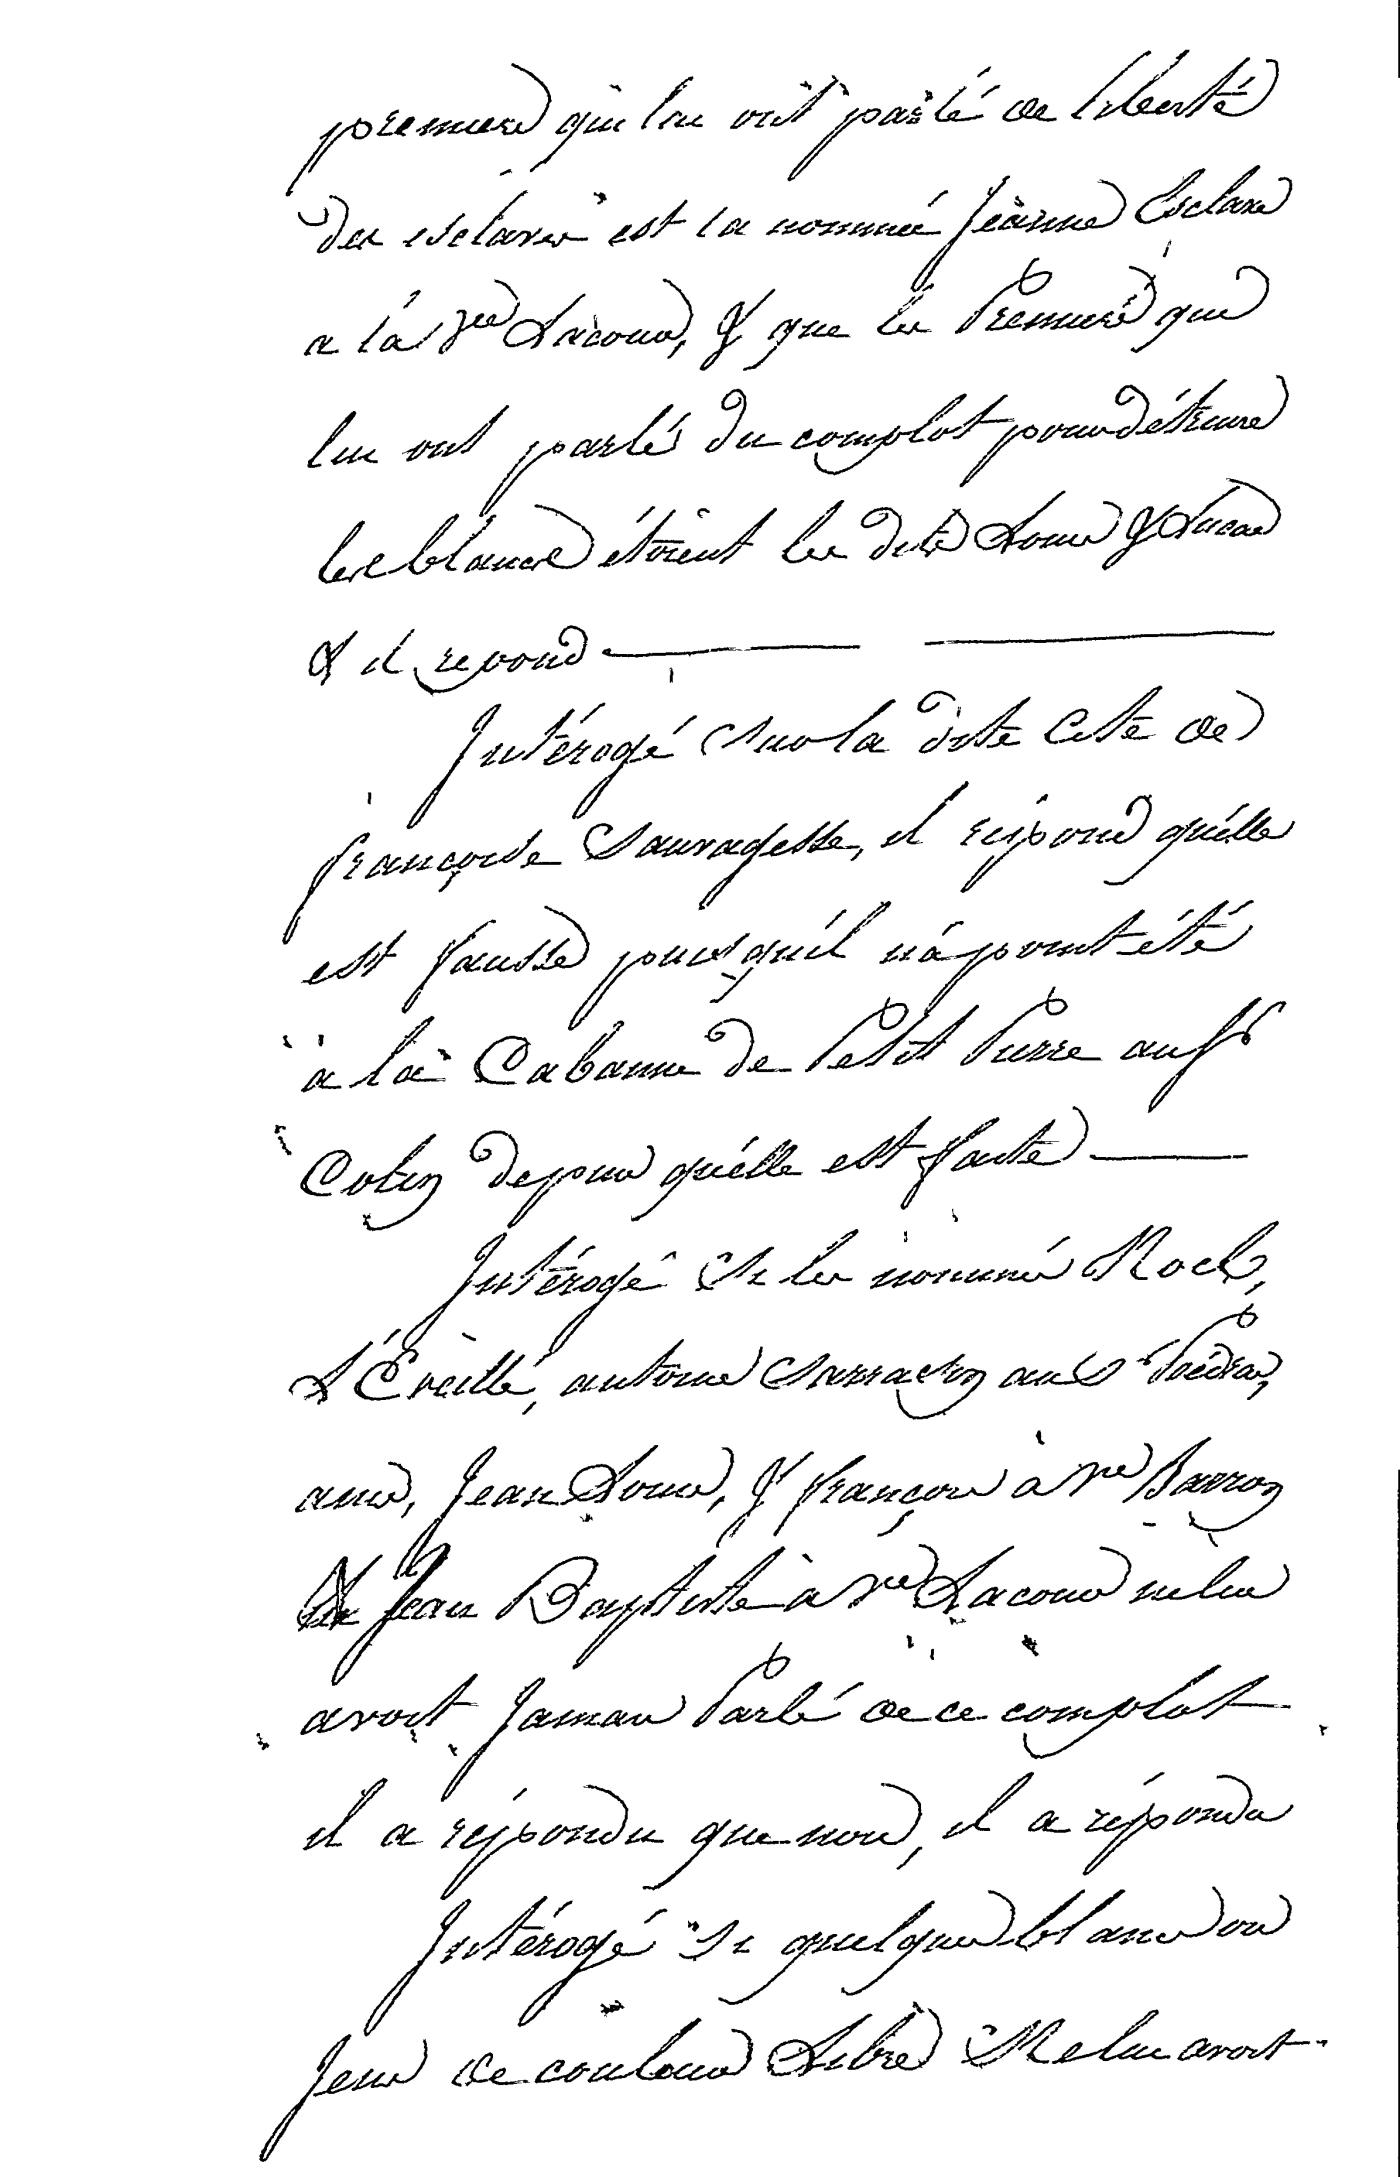 premiere qui lui ont parlé de liberté
des esclaves est la nommée Jeanne Esclave
a la Vve Lacour, & que les Premiers qui
lui ont parlés du complot pour détruire
les blancs étoient les dits Louis & Lucas
& il repond
Intérogé sur la dite Cite de
françoise Sauvagesse, il répond qu'élle
est fausse puis qu'il n'a point été
à la Cabanne de Petit Pierre au Sr
Colin depuis qu'élle est faite
Intérogé si les nommés Noel,
L'Éveillé, antoine Sarrasin au Sr Poidras,
Jean Louis, & françois à Vve Barron
Jean Baptiste à Vve Lacour ne lui
avoit Jamais Parlé de ce complot
il a répondu que non, il a répondu
Intérogé si quelques blancs ou
Jens de couleur Libre Ne lui avoit